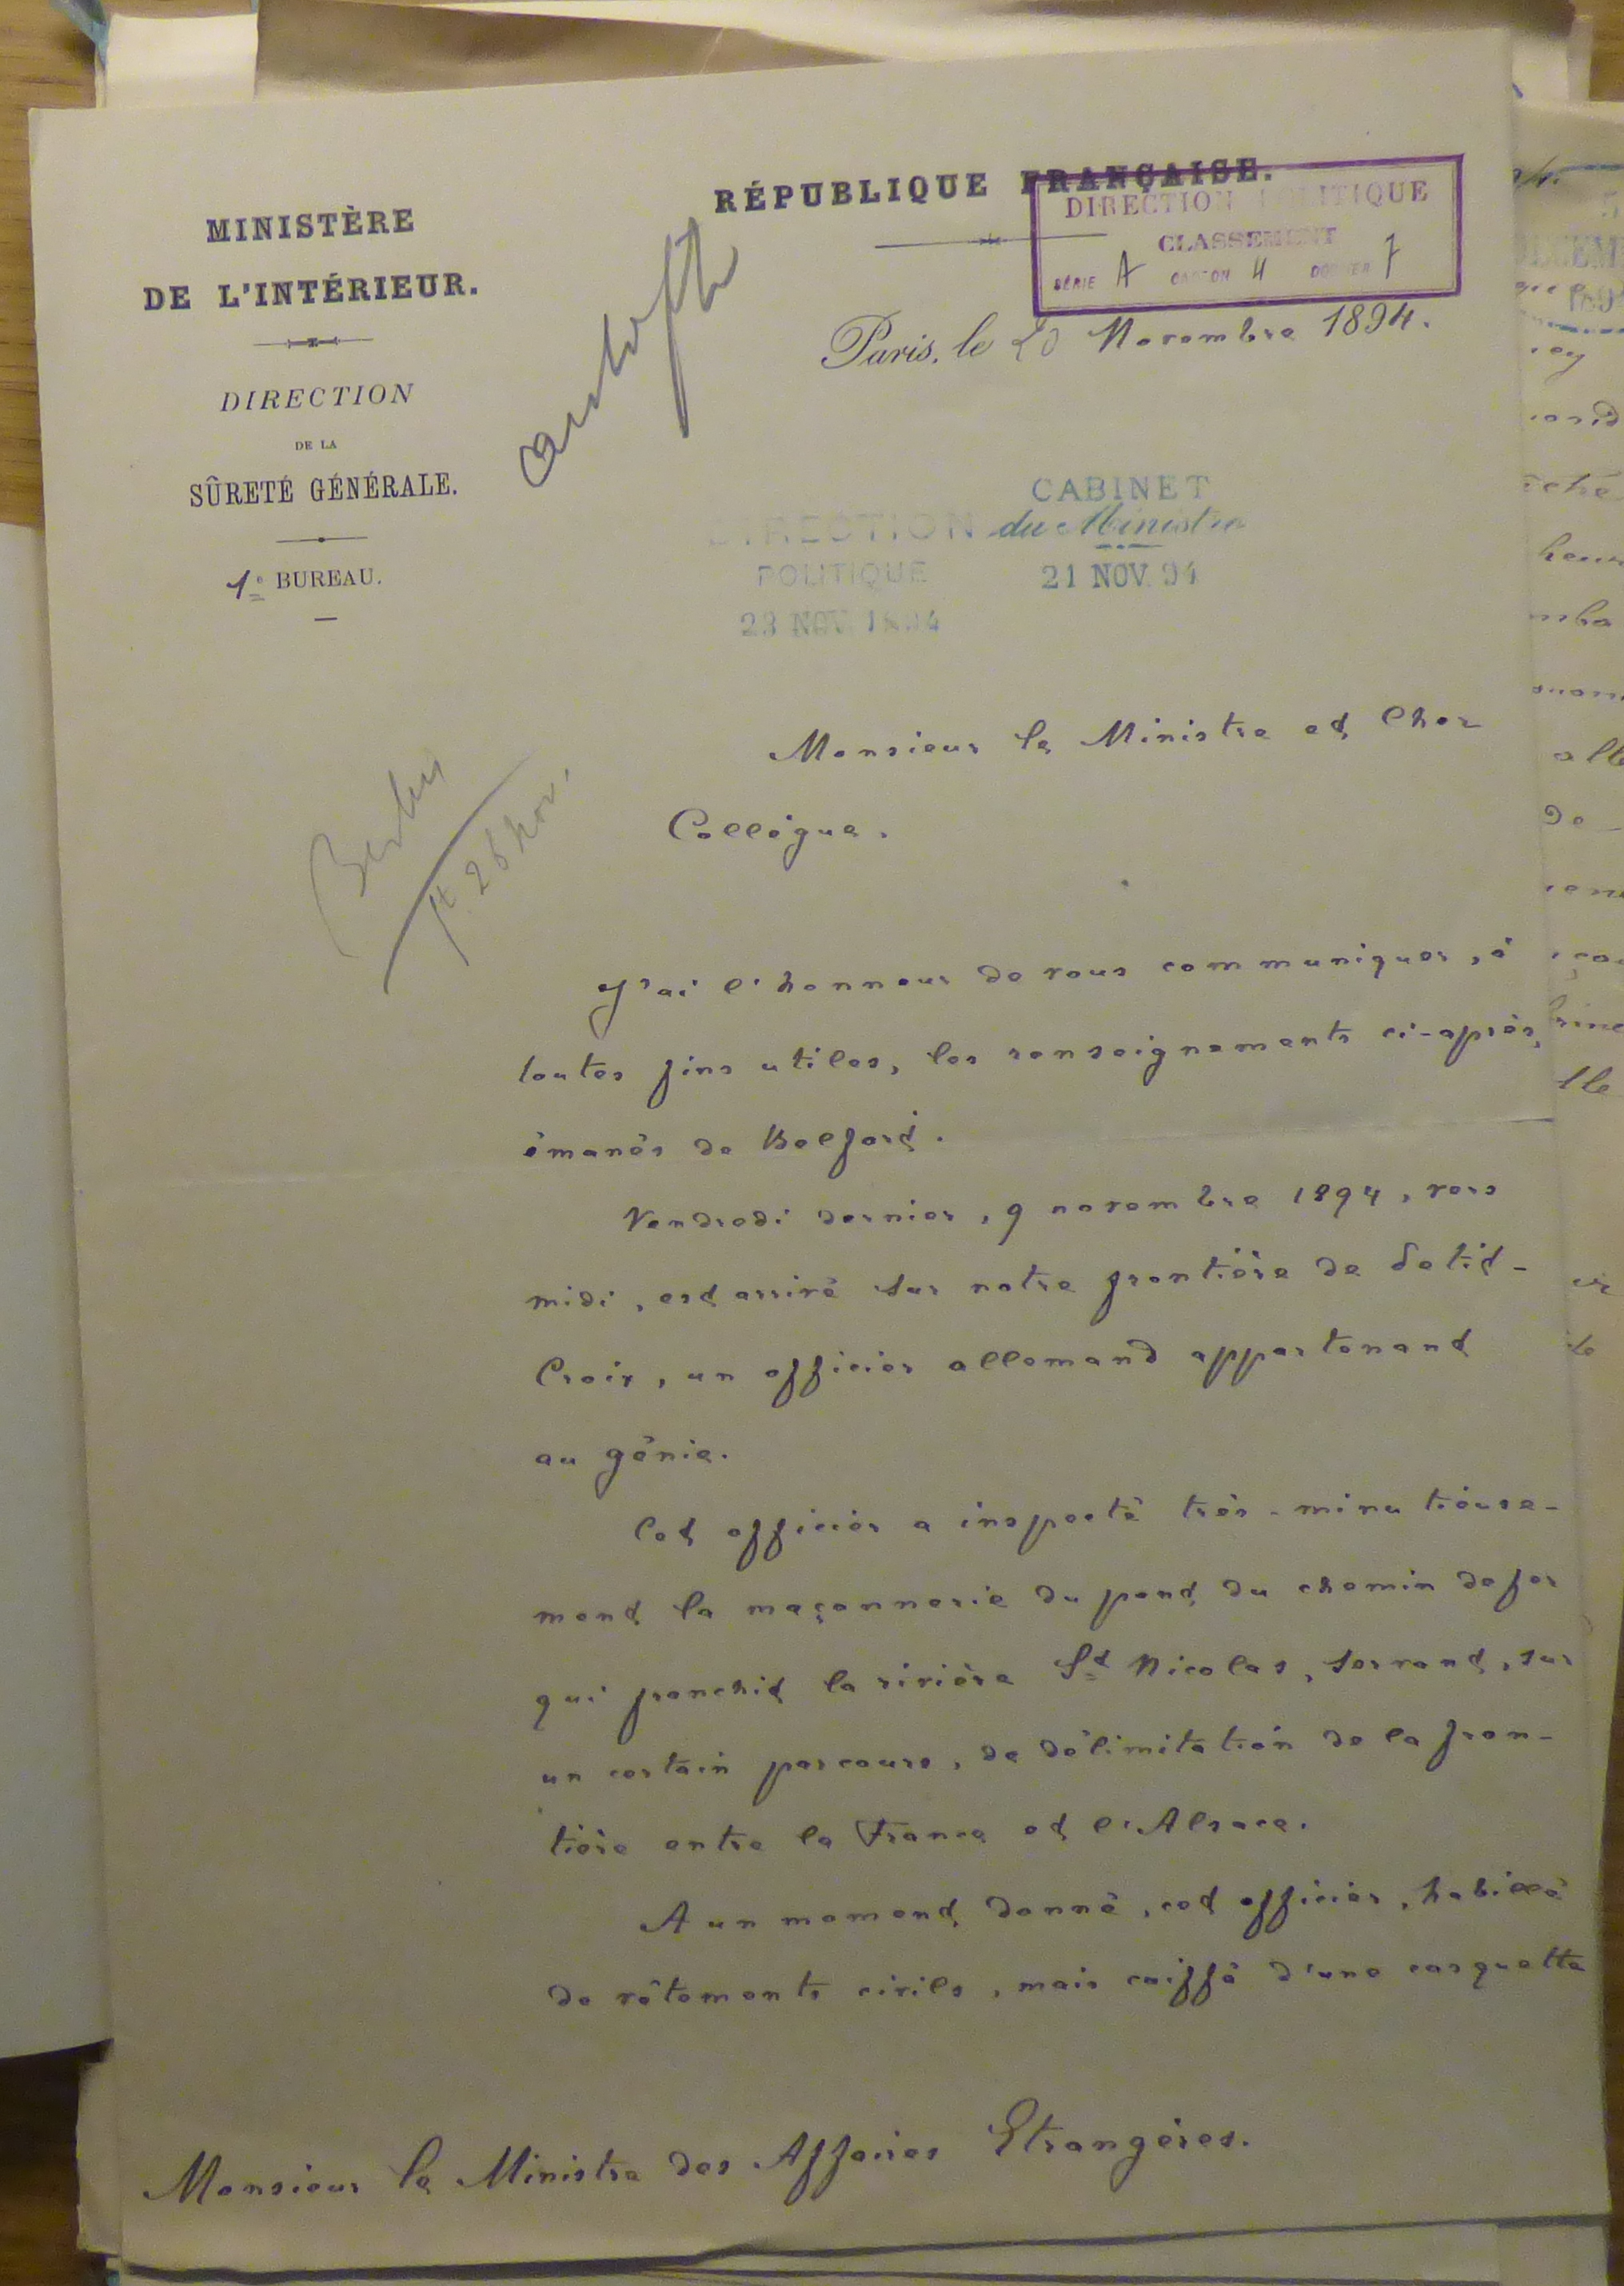 MINISTÈRE
DE L'INTÉRIEUR.
DIRECTION
DE LA
SÛRETÉ GÉNÉRALE.
1e BUREAU.
RÉPUBLIQUE FRANÇAISE.
DIRECTION POLITIQUE
CLASSEMENT
SÉRIE A CARTON 4 DOSSIER 7
Paris, le 20 Novembre 1894.
CABINET
du Ministre
21 NOV. 94
DIRECTION
POLITIQUE
23 NOV. 1894
26 nov.
Monsieur le Ministre et Cher
Collègue.
J'ai l'honneur de vous communiquer, à
toutes fins utiles, les renseignements ci-après,
émanés de Belfort.
Vendredi dernier, 9 novembre 1894, vers
midi, est arrivé sur notre frontière de Petit-
Croix, un officier allemand appartenant
au génie.
Cet officier a inspecté très-minutieuse-
ment la maçonnerie du pont du chemin de fer
qui franchit la rivière St Nicolas, servant, sur
un certain parcours, de délimitation de la fron-
tière entre la France et l'Alsace.
A un moment donné, cet officier, habillé
de vêtements civils, mais coiffé d'une casquette
Monsieur le Ministre des Affaires Etrangères.